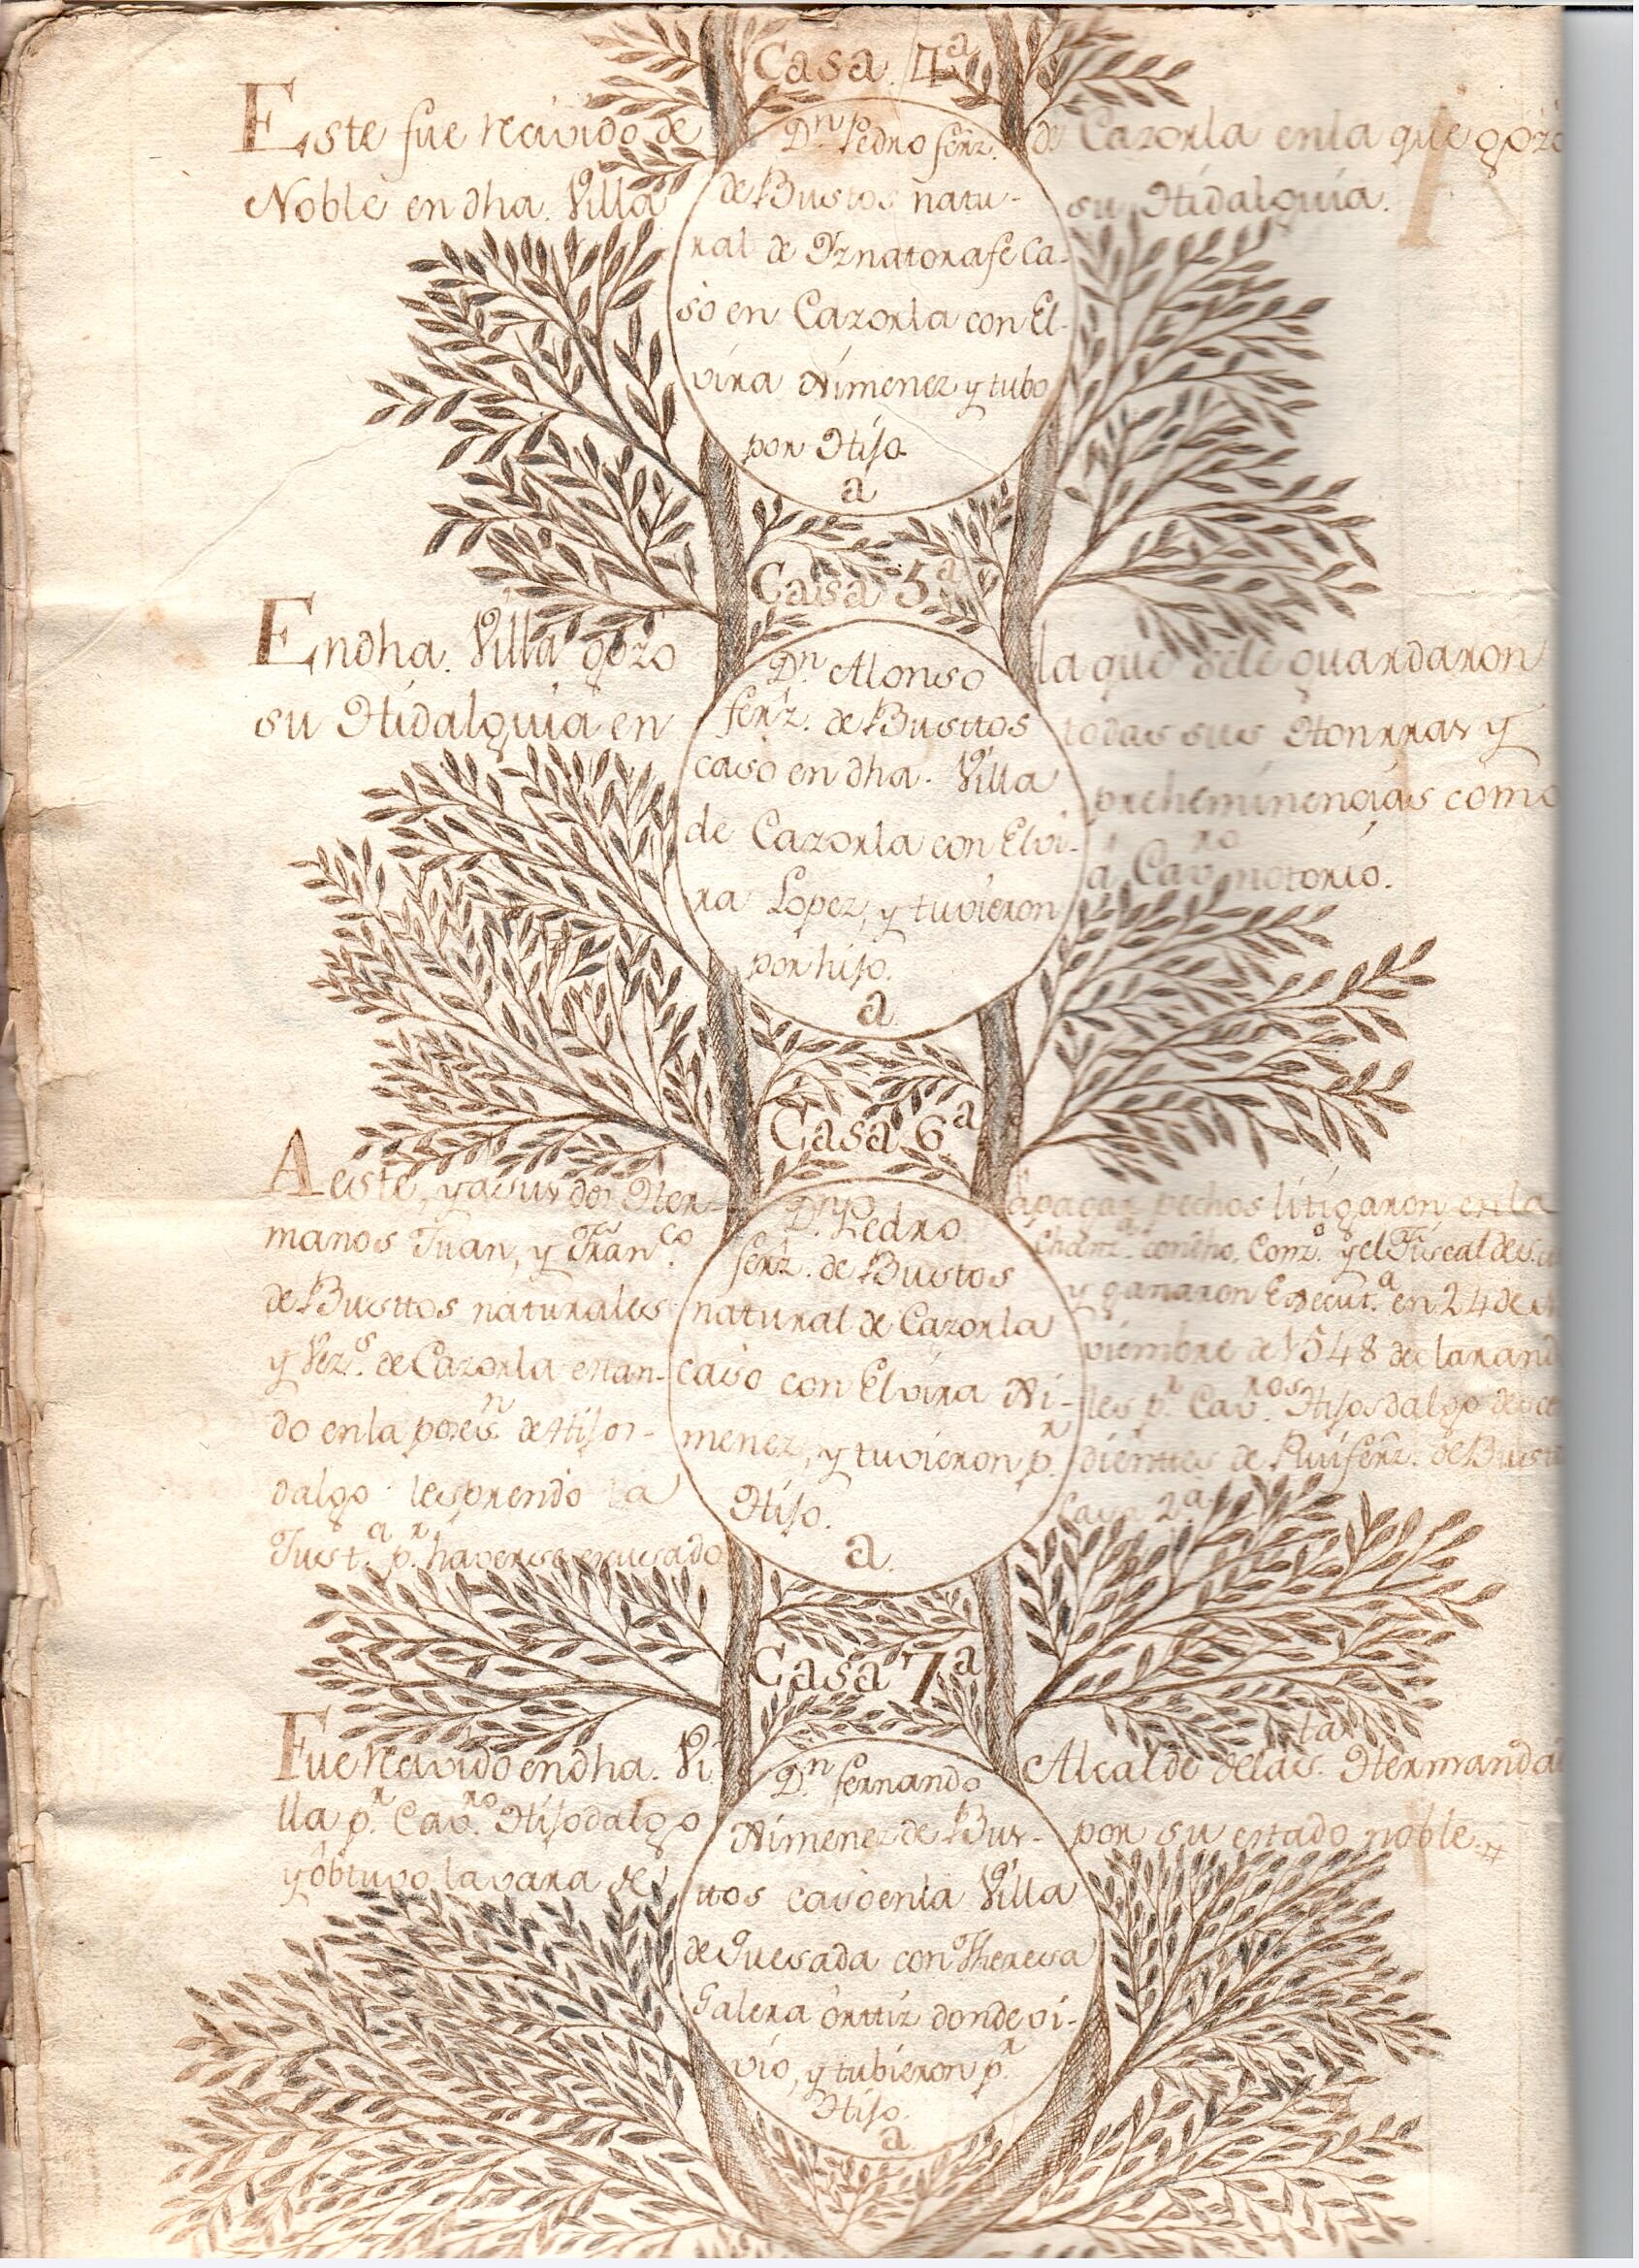 Casa. 4ª
Este fue recivido de
Noble en dha. Villa
Dn. Pedro ferz.
de Bustos natu-
ral de Yznatorafe ca-
so en Cazorla con El-
vira Ximenez y tubo
por Hijo
a
de Cazorla enla que gozó
su Hidalguia.
Casa 5ª
Endha. Villa gozo
su Hidalguia en
Dn. Alonso
ferz. de Busttos
caso en dha. Villa
de Cazorla con Elvi-
ra Lopez, y tuvieron
por hijo.
a
la que sele guardaron
todas sus Honrras y
preheminencias como
a Cavro notorio.
Casa 6ª
A este, y a sus dos Her-
manos Juan, y Franco.
de Busttos naturales
y Vezos. de Cazorla estan-
do enla posesn. de Hijos-
dalgo les prendo la
Justa. pr. haverse escusado
Dn. Pedro
ferz. de Bustos
natural de Cazorla
caso con Elvira Xi-
menez, y tuvieron pr.
Hijo.
a
apagar pechos litigaron enla
Chanza. condho. Conzo. y el Fiscal de
y ganaron Executa. en 24 de
viembre de 1548 declarand
les pr. Cavros. Hijosdalgo
dientes de Rui ferz. de Busto
Casa 2ª
Casa 7ª
Fue recivido en dha. Vi
lla pr. Cavro. Hijodalgo
y obtuvo la vara de
Dn. fernando
Ximenez de Bus-
ttos caso enla Villa
de Quesada con Theresa
Galera Orttiz donde vi-
vio, y tubieron pr.
Hijo.
a
Alcalde dela sta. Hermandad
por su estado noble.